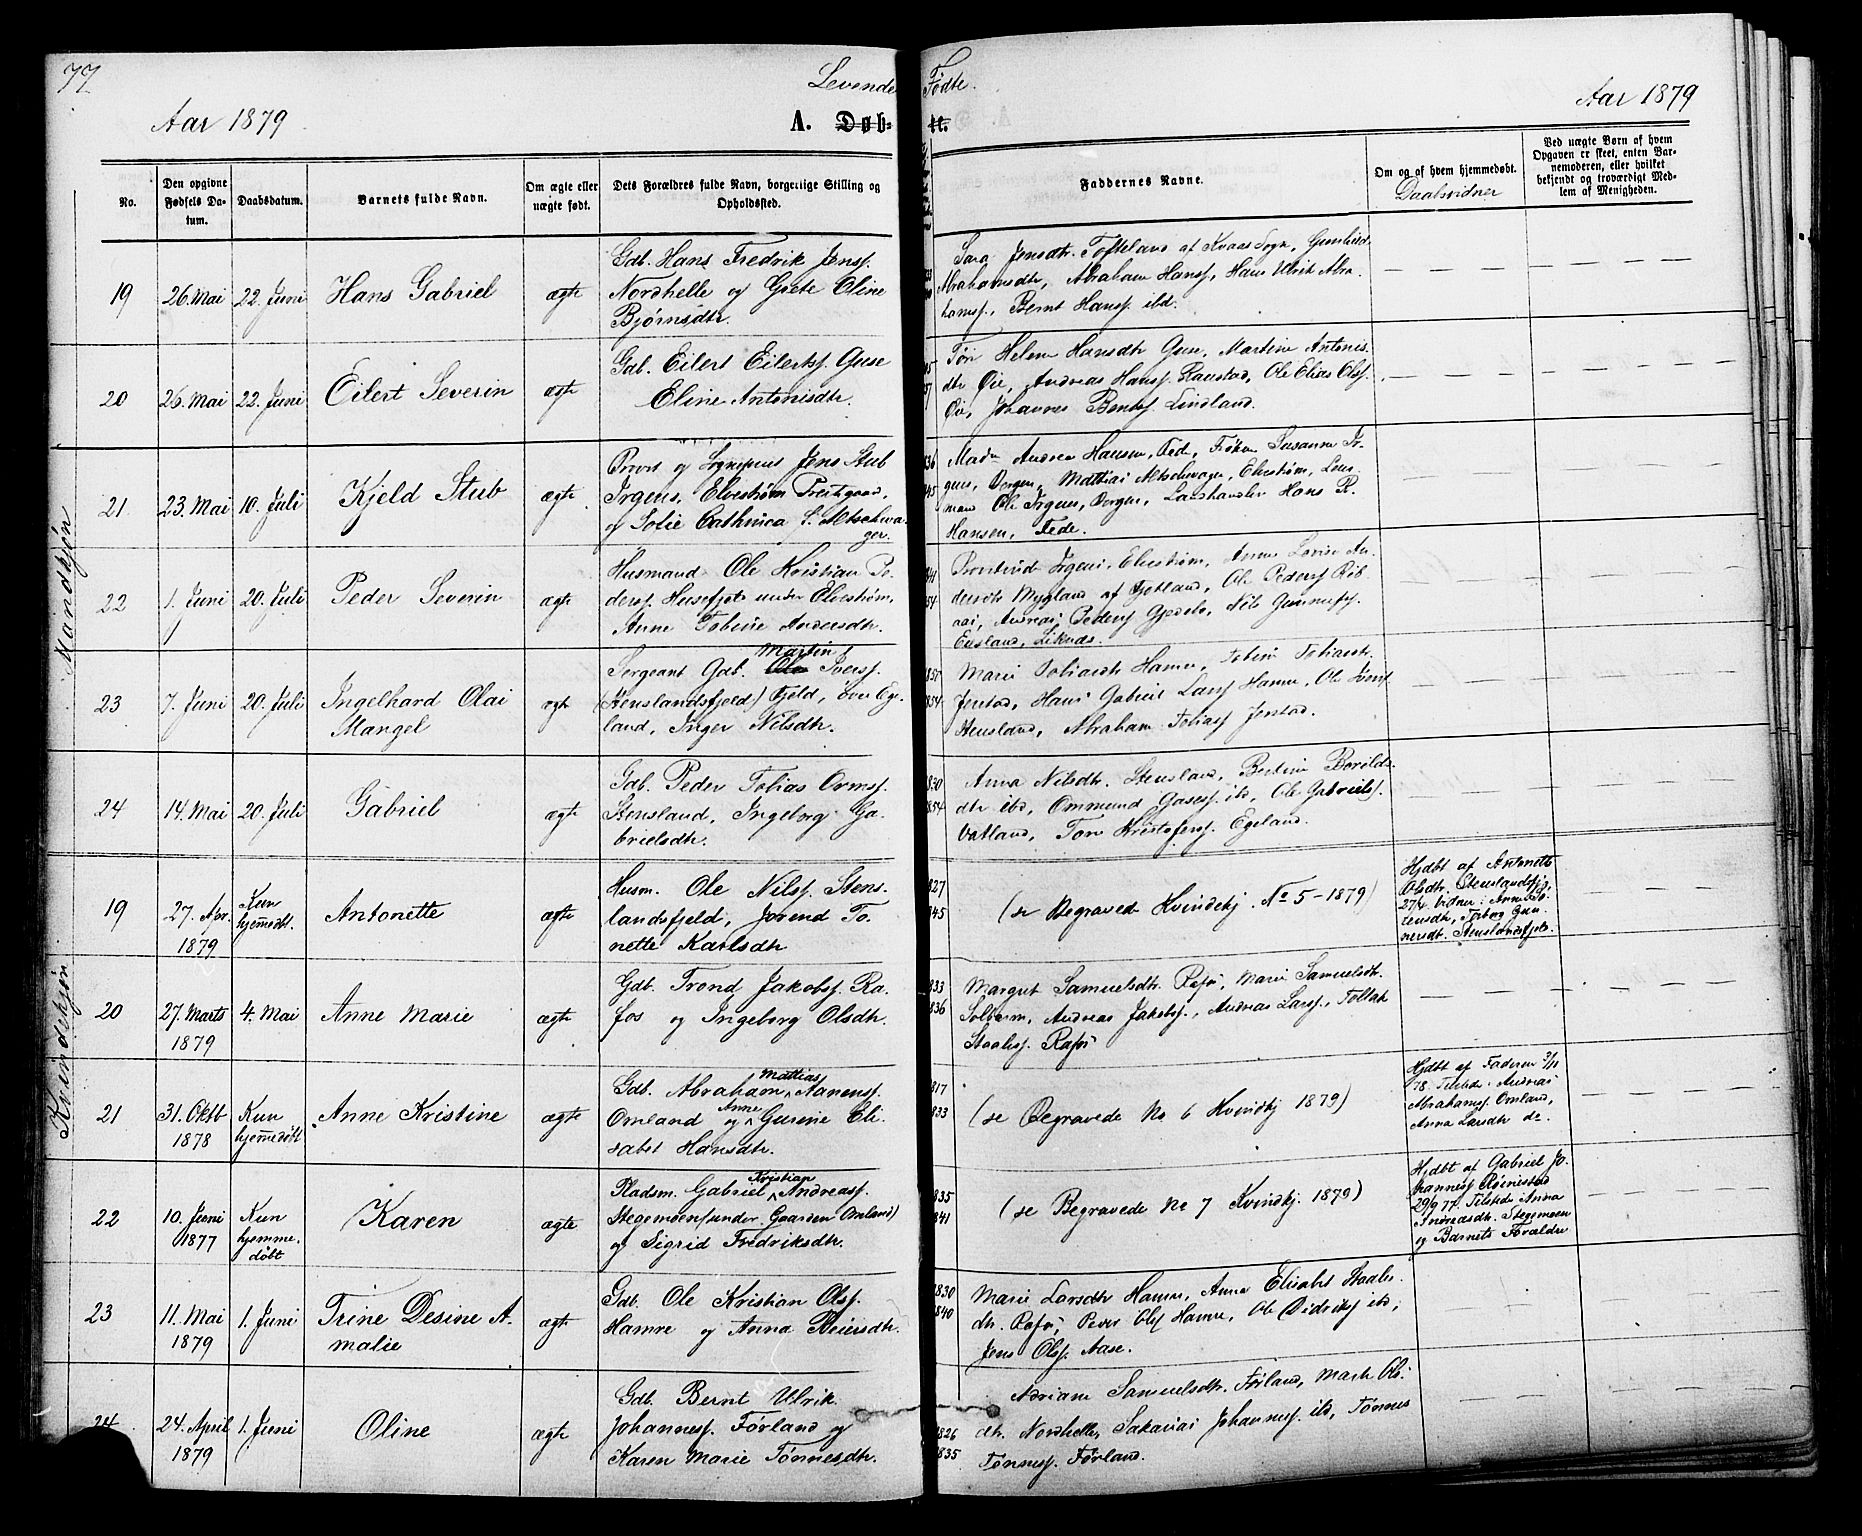 77
Levende
Fødte.
Aar 1879
A. Døb-
te.
Aar 1879
No.
Den opgivne Fødsels Datum.
Daabsdatum.
Barnets fulde Navn.
Om ægte eller uægte født.
Dets Forældres fulde Navn, borgerlige Stilling og Opholdssted.
Faddernes Navne.
Om og af hvem hjemmedøbt.
Daabsvidner
Ved uægte Børn af hvem Opgaven er skeet, enten Barnemoderen, eller hvilket bekjendt og troværdigt Medlem af Menigheden.
Mandkjøn
19
26. Mai
22. Juni
Hans Gabriel
ægte
Gdb. Hans Fredrik Jensf.
Nordhelle og Grete Eline
Bjørnsdtr.
Sara Jensdtr. Tofteland af Kvaas Sogn, Gunhild
Abrahamsdtr, Abraham Hansf, Hans Ulrik Abra-
hamsf., Bernt Hansf. ibd.
20
26. Mai
22. Juni
Eilert Severin
ægte
Gdb. Eilert Eilertsf. Guse
Eline Antonisdtr.
45
57
Helene Hansdtr Guse, Martine Antonis-
dtr Øie, Andreas Hansf. Raustad, Ole Elias Olsf.
Øie, Johannes Bentsf. Lindland.
21
23. Mai
10. Juli
Kjeld Stub
ægte
Provst og Sognepræst Jens Stub
Irgens, Elvestrøm Prestgaard,
og Sofie Cathrica f. Altschwa-
ger.
836
845
Mad. Andrea Hansen, Fede, Frøken Susanne Ir-
gens, Bergen, Mathias Altschwager, Elvestrøm, Lens-
mand Ole Irgens, Bergen, Landhandler Hans R.
Hansen, Fede.
22
1. Juni
20. Juli
Peder Severin
ægte
Husmand Ole Kristian Pe-
dersf. Husefjeld under Elvestrøm,
Anne Tobine Andersdtr.
841
854
Provstinde Irgens, Elvestrøm, Anne Lovise An-
dersdtr Mygland af Fjotland, Ole Pedersf Røb-
aai, Andreas Pedersf Gjedebo, Nils Gunnufsf.
Egeland, Liknes.
23
7. Juni
20. Juli
Ingelhard Olai
Mangel
ægte
Sergeant Gdb. Ole Martin Iversf.
(Stenslandsfjeld) Fjeld, over Ege-
land, Inger Nilsdtr.
1857
1854
Marie Tobiasdtr Hamre, Tobine Tobiasdtr.
Jerstad, Hans Gabriel Larsf Hamre, Ole Iversf
Stensland, Abraham Tobiasf Jerstad.
24
14. Mai
20. Juli
Gabriel
ægte
Gdb. Peder Tobias Ormsf.
Stensland, Ingeborg Ga-
brielsdtr.
1830
1854
Anna Nilsdtr. Stensland, Bertine Berulds-
dtr ibd, Ommund Gasesf. ibd, Ole Gabrielsf.
Vatland, Tore Kristofersf. Egeland.
Kvindekjøn
19
27. Apr.
1879
Kun
hjemmedt.
Antonette
ægte
Husm. Ole Nilsf. Stens-
landsfjeld, Jorend To-
nette Karlsdtr
827
845
(se Begravede Kvindekj. No 5 - 1879)
Hjdbt af Antonette
Olsdtr. Stenslandsfj.
27/4 Vidner: Anne To-
reusdtr, Torborg Gun-
nersdt. Stenslandsfjeld.
20
27. Marts
1879
4. Mai
Anne Marie
ægte
Gdb. Trond Jakobsf. Ra-
fos og Ingeborg Olsdtr.
833
836
Margret Samuelsdtr. Rafos, Marie Samuelsdtr.
Solberm, Andreas Jakobsf., Andreas Larsf., Tollak
Staalesf. Rafos
21
31. Oktb
1878
Kun
hjemmedøbt
Anne Kristine
ægte
Gdb. Abraham Mathias Aanensf.
Omland og Anne Gurine Eli-
sabet Hansdtr.
817
833
(se Begravede No 6 Kvindkj 1879)
Hjdbt af Faderen 3/11
78. Tilstede: Andreas
Abrahamsf. Omland,
Anna Larsdtr do.
22
10. Juni
1877
Kun
hjemme-
døbt
Karen
ægte
Pladsm. Gabriel Kristian Andreasf.
Stegemoen (under Gaarden Omland)
og Sigrid Fredriksdtr.
835
841
(se Begravede No 7 Kvindkj. 1879)
Hjdbt af Gabriel Jo-
hannesf Røinestad
29/9 77. Tilstede Anna
Andreasdtr. Stegemoen
og Barnets Forældre
23
11. Mai
1879
1. Juni
Trine Desine A-
malie
ægte
Gdb. Ole Kristian Olsf.
Hamre og Anna Reiersdtr.
1830
1840
Marie Larsdtr Hamre, Anna Elisabet Staales-
dtr. Rafos, Peder Olsf Hamre, Ole Didriksf ibd,
Jens Olsf. Aase.
24
24. April
1879
1. Juni
Oline
ægte
Gdb. Bernt Ulrik
Johannesf. Førland og
Karen Marie Tønnesdtr.
1826
1835
Adriane Samuelsdtr. Førland, Marte Ol-
dtr. Nordhelle, Sakarias Johannesf. ibd, Tønnes
Tønnesf. Førland.